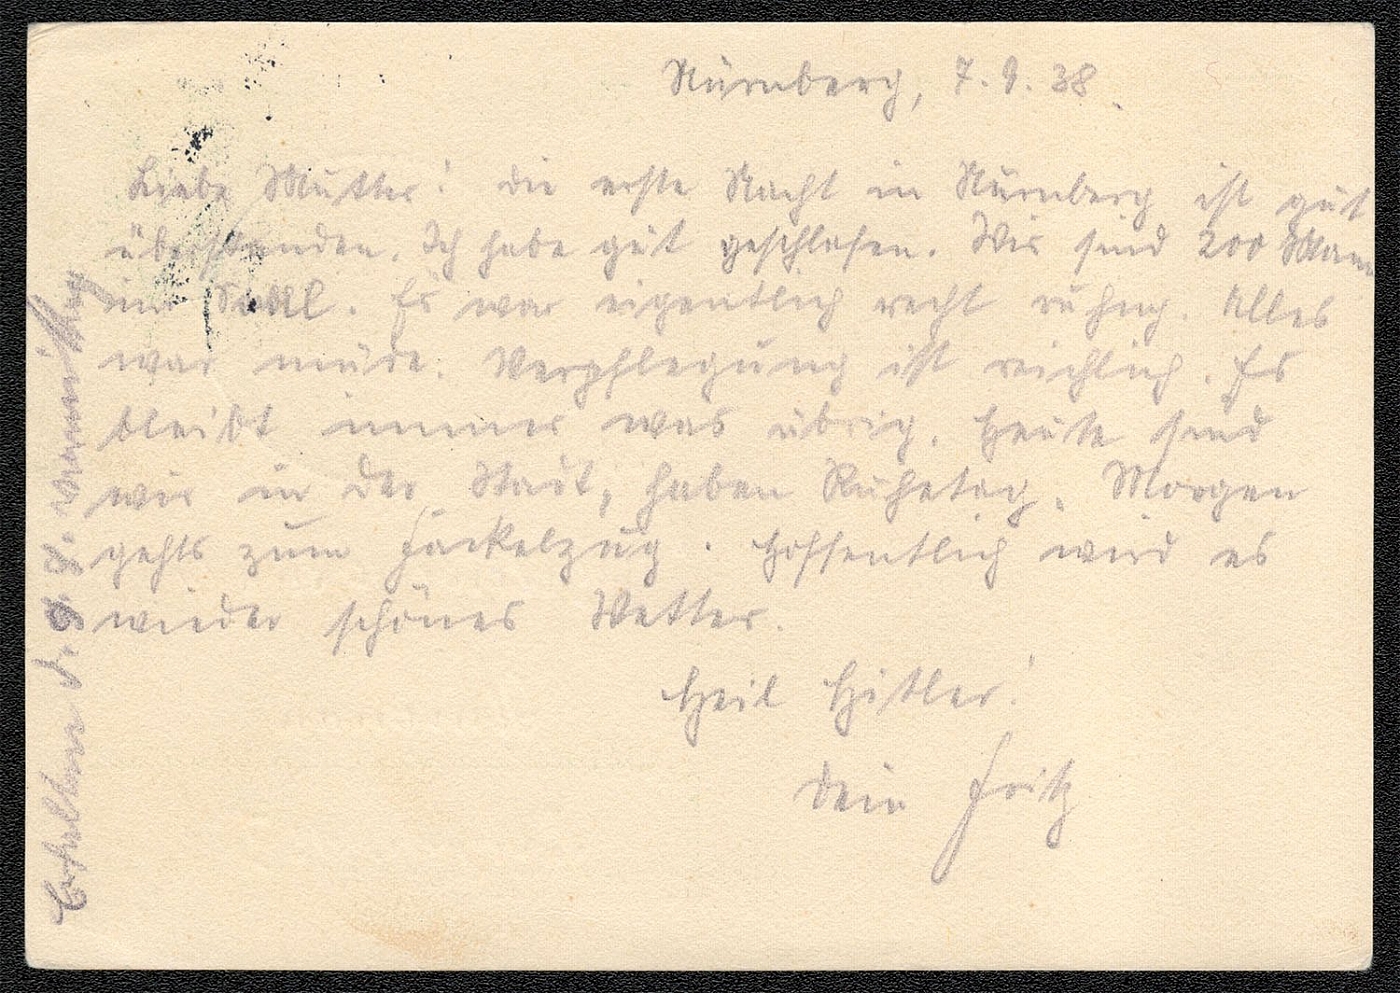 Nürnberg, 7.9.38.
Liebe Mutter! Die erste Nacht in Nürnberg ist gut
überstanden. Ich habe gut geschlafen. Wir sind 200 Mann
im Saal. Es war eigentlich recht ruhig. Alles
war müde. Verpflegung ist reichlich. Es
bleibt immer was übrig. Heute sind
wir in der Stadt, haben Ruhetag. Morgen
gehts zum Fackelzug. Hoffentlich wird es
wieder schönes Wetter.
Heil Hitler!
Dein Fritz
Erhalten d. 9. 9. vormittag